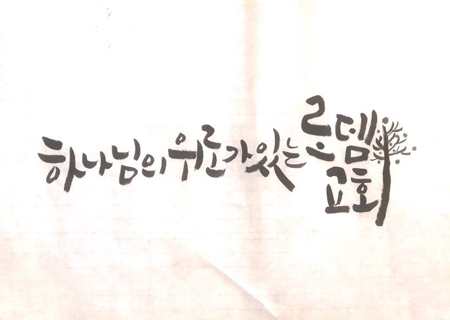 하나님의 위로가 있는 로뎀
교회